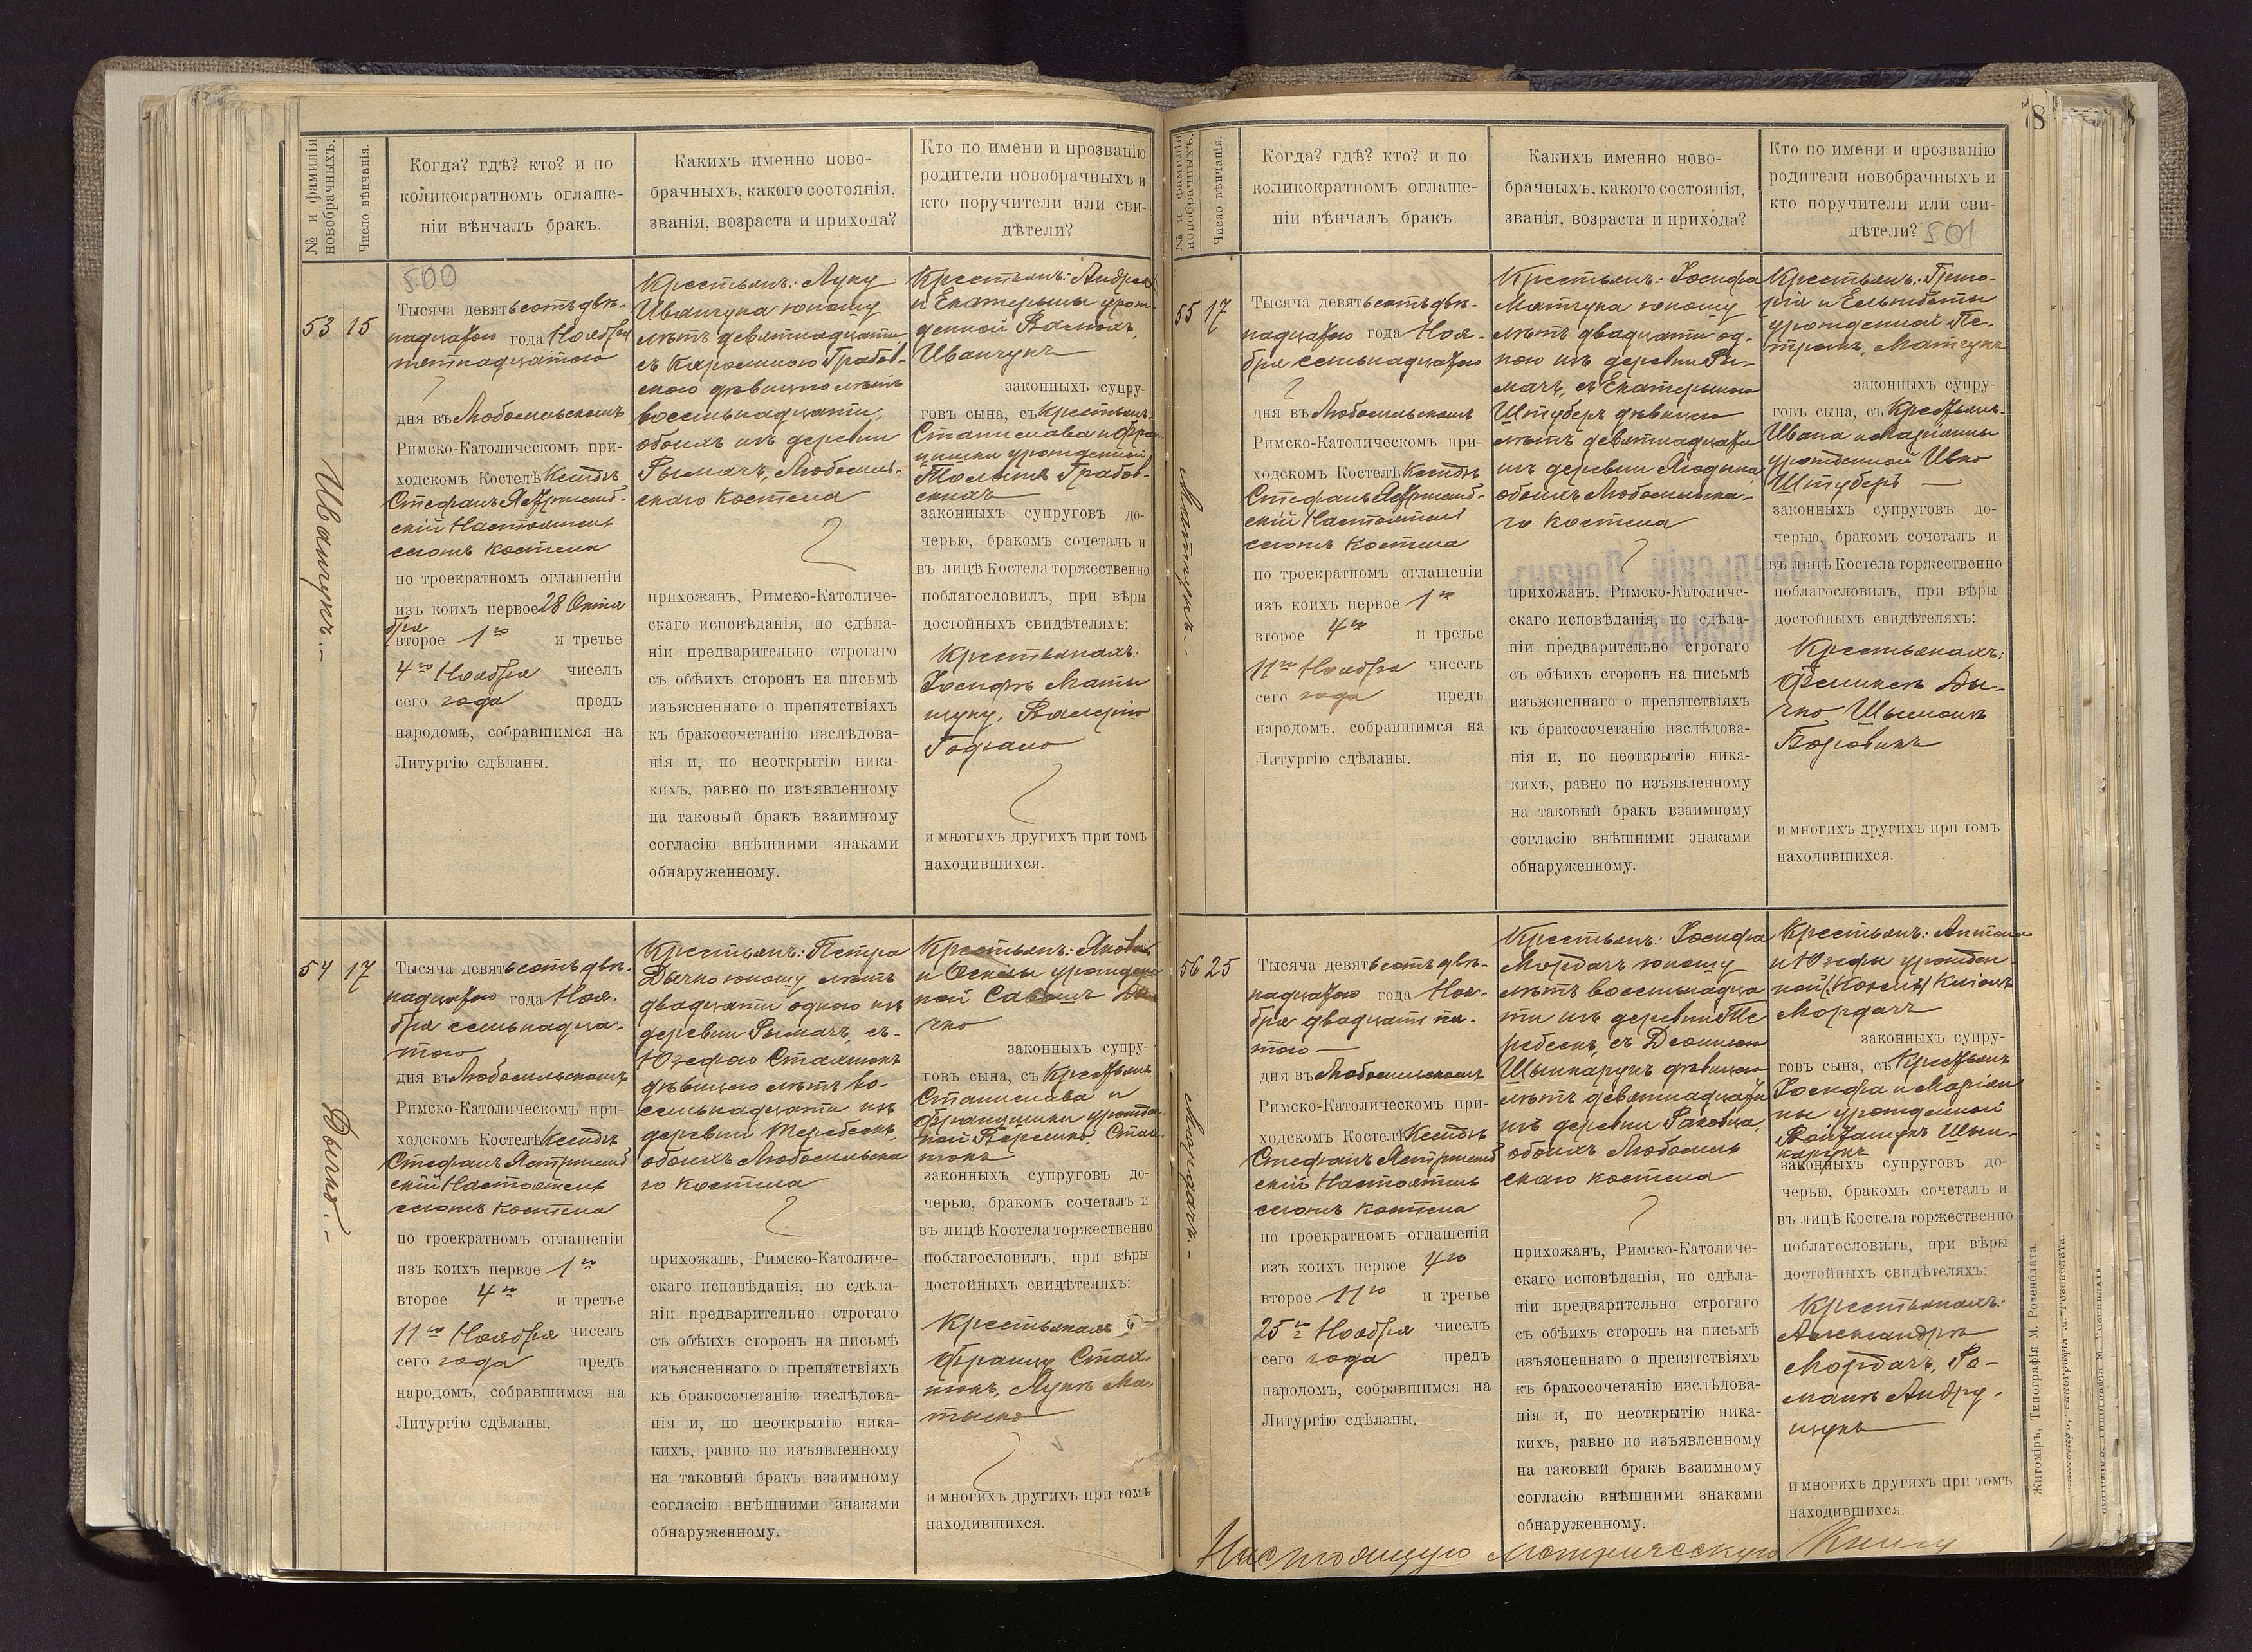 № и фамилія новобрачныхъ.
Число вѣнчанія.
Когда? гдѣ? кто? и по
коликократномъ оглаше-
ніи вѣнчалъ бракъ.
Какихъ именно ново-
брачныхъ, какого состоянія,
званія, возраста и прихода?
Кто по имени и прозванію
родители новобрачныхъ и
кто поручители или сви-
дѣтели?
53
15
Иванчукъ.-
500
Тысяча девятьсотъ двѣ-
надцатаго года Ноября
пятнадцатого
дня въ Любомльскомъ
Римско-Католическомъ при-
ходскомъ Костелѣ Ксендзъ
Стефанъ Ястржемб-
скій Настоятель
сего костела
по троекратномъ оглашеніи
изъ коихъ первое 28 Октя
бря
второе 1го и третье
4го Ноября чиселъ
сего года предъ
народомъ, собравшимся на
Литургію сдѣланы.
Крестьянъ: Луку
Иванчука юношу
лѣтъ девятнадцати
съ Каролиною Грабов-
скою дѣвицею лѣтъ
восемьнадцати,
обоихъ изъ деревни
Рымачъ, Любомль-
скаго Костела
прихожанъ, Римско-Католиче-
скаго исповѣданія, по сдѣла-
ніи предварительно строгаго
съ обѣихъ сторонъ на письмѣ
изъясненнаго о препятствіяхъ
къ бракосочетанію изслѣдова-
нія и, по неоткрытію ника-
кихъ, равно по изъявленному
на таковый бракъ взаимному
согласію внѣшними знаками
обнаруженному.
Крестьянъ: Андрея
и Екатерины урож
денной
Иванчукъ
законныхъ супру-
говъ сына, съ Крестьянъ
Станислава и Фран
цишки урожденной
Грабов-
скихъ
законныхъ супруговъ до-
черью, бракомъ сочеталъ и
въ лицѣ Костела торжественно
поблагословилъ, при вѣры
достойныхъ свидѣтеляхъ:
Крестьянахъ:
Іосифъ Мати
щуку, Валерію
и многихъ другихъ при томъ
находившихся.
54
17
Дычко.-
Тысяча девятьсотъ двѣ-
надцатаго года Ноя-
бря семьнадца-
того
дня въ Любомльскомъ
Римско-Католическомъ при-
ходскомъ Костелѣ Ксендзъ
Стефанъ Ястржемб
скій Настоятель
сего костела
по троекратномъ оглашеніи
изъ коихъ первое 1го
второе 4го и третье
11го Ноября чиселъ
сего года предъ
народомъ, собравшимся на
Литургію сдѣланы.
Крестьянъ: Петра
Дычко юношу лѣтъ
двадцати одного изъ
деревни Рымачъ, съ
Юзефою Стаянюкъ
дѣвицею лѣтъ во-
семьнадцати изъ
деревни Теребейкъ,
обоихъ Любомльска
го костела
прихожанъ, Римско-Католиче-
скаго исповѣданія, по сдѣла-
ніи предварительно строгаго
съ обѣихъ сторонъ на письмѣ
изъясненнаго о препятствіяхъ
къ бракосочетанію изслѣдова-
нія и, по неоткрытію ника-
кихъ, равно по изъявленному
на таковый бракъ взаимному
согласію внѣшними знаками
обнаруженному.
Крестьянъ:
и урожден
ной Ды
чко
законныхъ супру-
говъ сына, съ Крестьянъ
Станислава и
Францишки урожден
ной
законныхъ супруговъ до-
черью, бракомъ сочеталъ и
въ лицѣ Костела торжественно
поблагословилъ, при вѣры
достойныхъ свидѣтеляхъ:
Крестьянахъ
и многихъ другихъ при томъ
находившихся.
78
№ и фамилія новобрачныхъ.
Число вѣнчанія.
Когда? гдѣ? кто? и по
коликократномъ оглаше-
ніи вѣнчалъ бракъ
Какихъ именно ново-
брачныхъ, какого состоянія,
званія, возраста и прихода?
Кто по имени и прозванію
родители новобрачныхъ и
кто поручители или сви-
дѣтели? 501
55
17
Матчукъ.-
Тысяча девятьсотъ двѣ-
надцатаго года Ноя-
бря семьнадцатаго
дня въ Любомльскомъ
Римско-Католическомъ при-
ходскомъ Костелѣ Ксендзъ
Стефанъ Ястржемб-
скій Настоятель
сего костела
по троекратномъ оглашеніи
изъ коихъ первое 1го
второе 4го и третье
11го Ноября чиселъ
сего года предъ
народомъ, собравшимся на
Литургію сдѣланы.
Крестьянъ: Іосифа
Матчука юношу
лѣтъ двадцати од-
ного изъ деревни Ры-
мачъ, съ Екатериною
Штуберъ дѣвицею
лѣтъ девятнадцати
изъ деревни Ягодина
обоихъ Любомльска-
го костела
прихожанъ, Римско-Католиче-
скаго исповѣданія, по сдѣла-
ніи предварительно строгаго
съ обѣихъ сторонъ на письмѣ
изъясненнаго о препятствіяхъ
къ бракосочетанію изслѣдова-
нія и, по неоткрытію ника-
кихъ, равно по изъявленному
на таковый бракъ взаимному
согласію внѣшними знаками
обнаруженному.
Ковельскій Деканъ
Ксендзъ
Крестьянъ: Григо-
рія и Елизабеты
урожденной Пе-
трукъ, Матчукъ
законныхъ супру-
говъ сына, съ Крестьянъ
Ивана и Маріанны
урожденной Ивко
Штуберъ
законныхъ супруговъ до-
черью, бракомъ сочеталъ и
въ лицѣ Костела торжественно
поблагословилъ, при вѣры
достойныхъ свидѣтеляхъ:
Крестьянахъ:
Феликсъ Ды-
чко Шымонъ
Боровикъ
и многихъ другихъ при томъ
находившихся.
56
25
Мордачъ.-
Тысяча девятьсотъ двѣ-
надцатаго года Ноя-
бря двадцать пя-
того
дня въ Любомльскомъ
Римско-Католическомъ при-
ходскомъ Костелѣ Ксендзъ
Стефанъ Ястржемб
скій Настоятель
сего костела
по троекратномъ оглашеніи
изъ коихъ первое 4го
второе 11го и третье
25го Ноября чиселъ
сего года предъ
народомъ, собравшимся на
Литургію сдѣланы.
Крестьянъ: Іосифа
Мордачъ юношу
лѣтъ восемьнадца
ти изъ деревни Те
ребеекъ, съ Деонизею
Шынкарукъ дѣвицею
лѣтъ девятнадцати
изъ деревни Раковца,
обоихъ Любомль
скаго костела
прихожанъ, Римско-Католиче-
скаго исповѣданія, по сдѣла-
ніи предварительно строгаго
съ обѣихъ сторонъ на письмѣ
изъясненнаго о препятствіяхъ
къ бракосочетанію изслѣдова-
нія и, по неоткрытію ника-
кихъ, равно по изъявленному
на таковый бракъ взаимному
согласію внѣшними знаками
обнаруженному.
Крестьянъ: Антона
и Юзефы урожден-
ной
Мордачъ
законныхъ супру-
говъ сына, съ Крестьянъ
Іосифа и Маріан
ны урожденной
Войтащукъ Шын-
карукъ
законныхъ супруговъ до-
черью, бракомъ сочеталъ и
въ лицѣ Костела торжественно
поблагословилъ, при вѣры
достойныхъ свидѣтеляхъ:
Крестьянахъ:
Александръ
Мордачъ, Ро-
манъ Андру-
щукъ
и многихъ другихъ при томъ
находившихся
Житоміръ, Типографія М. Розенблата.
Настоящую метрическую Книгу